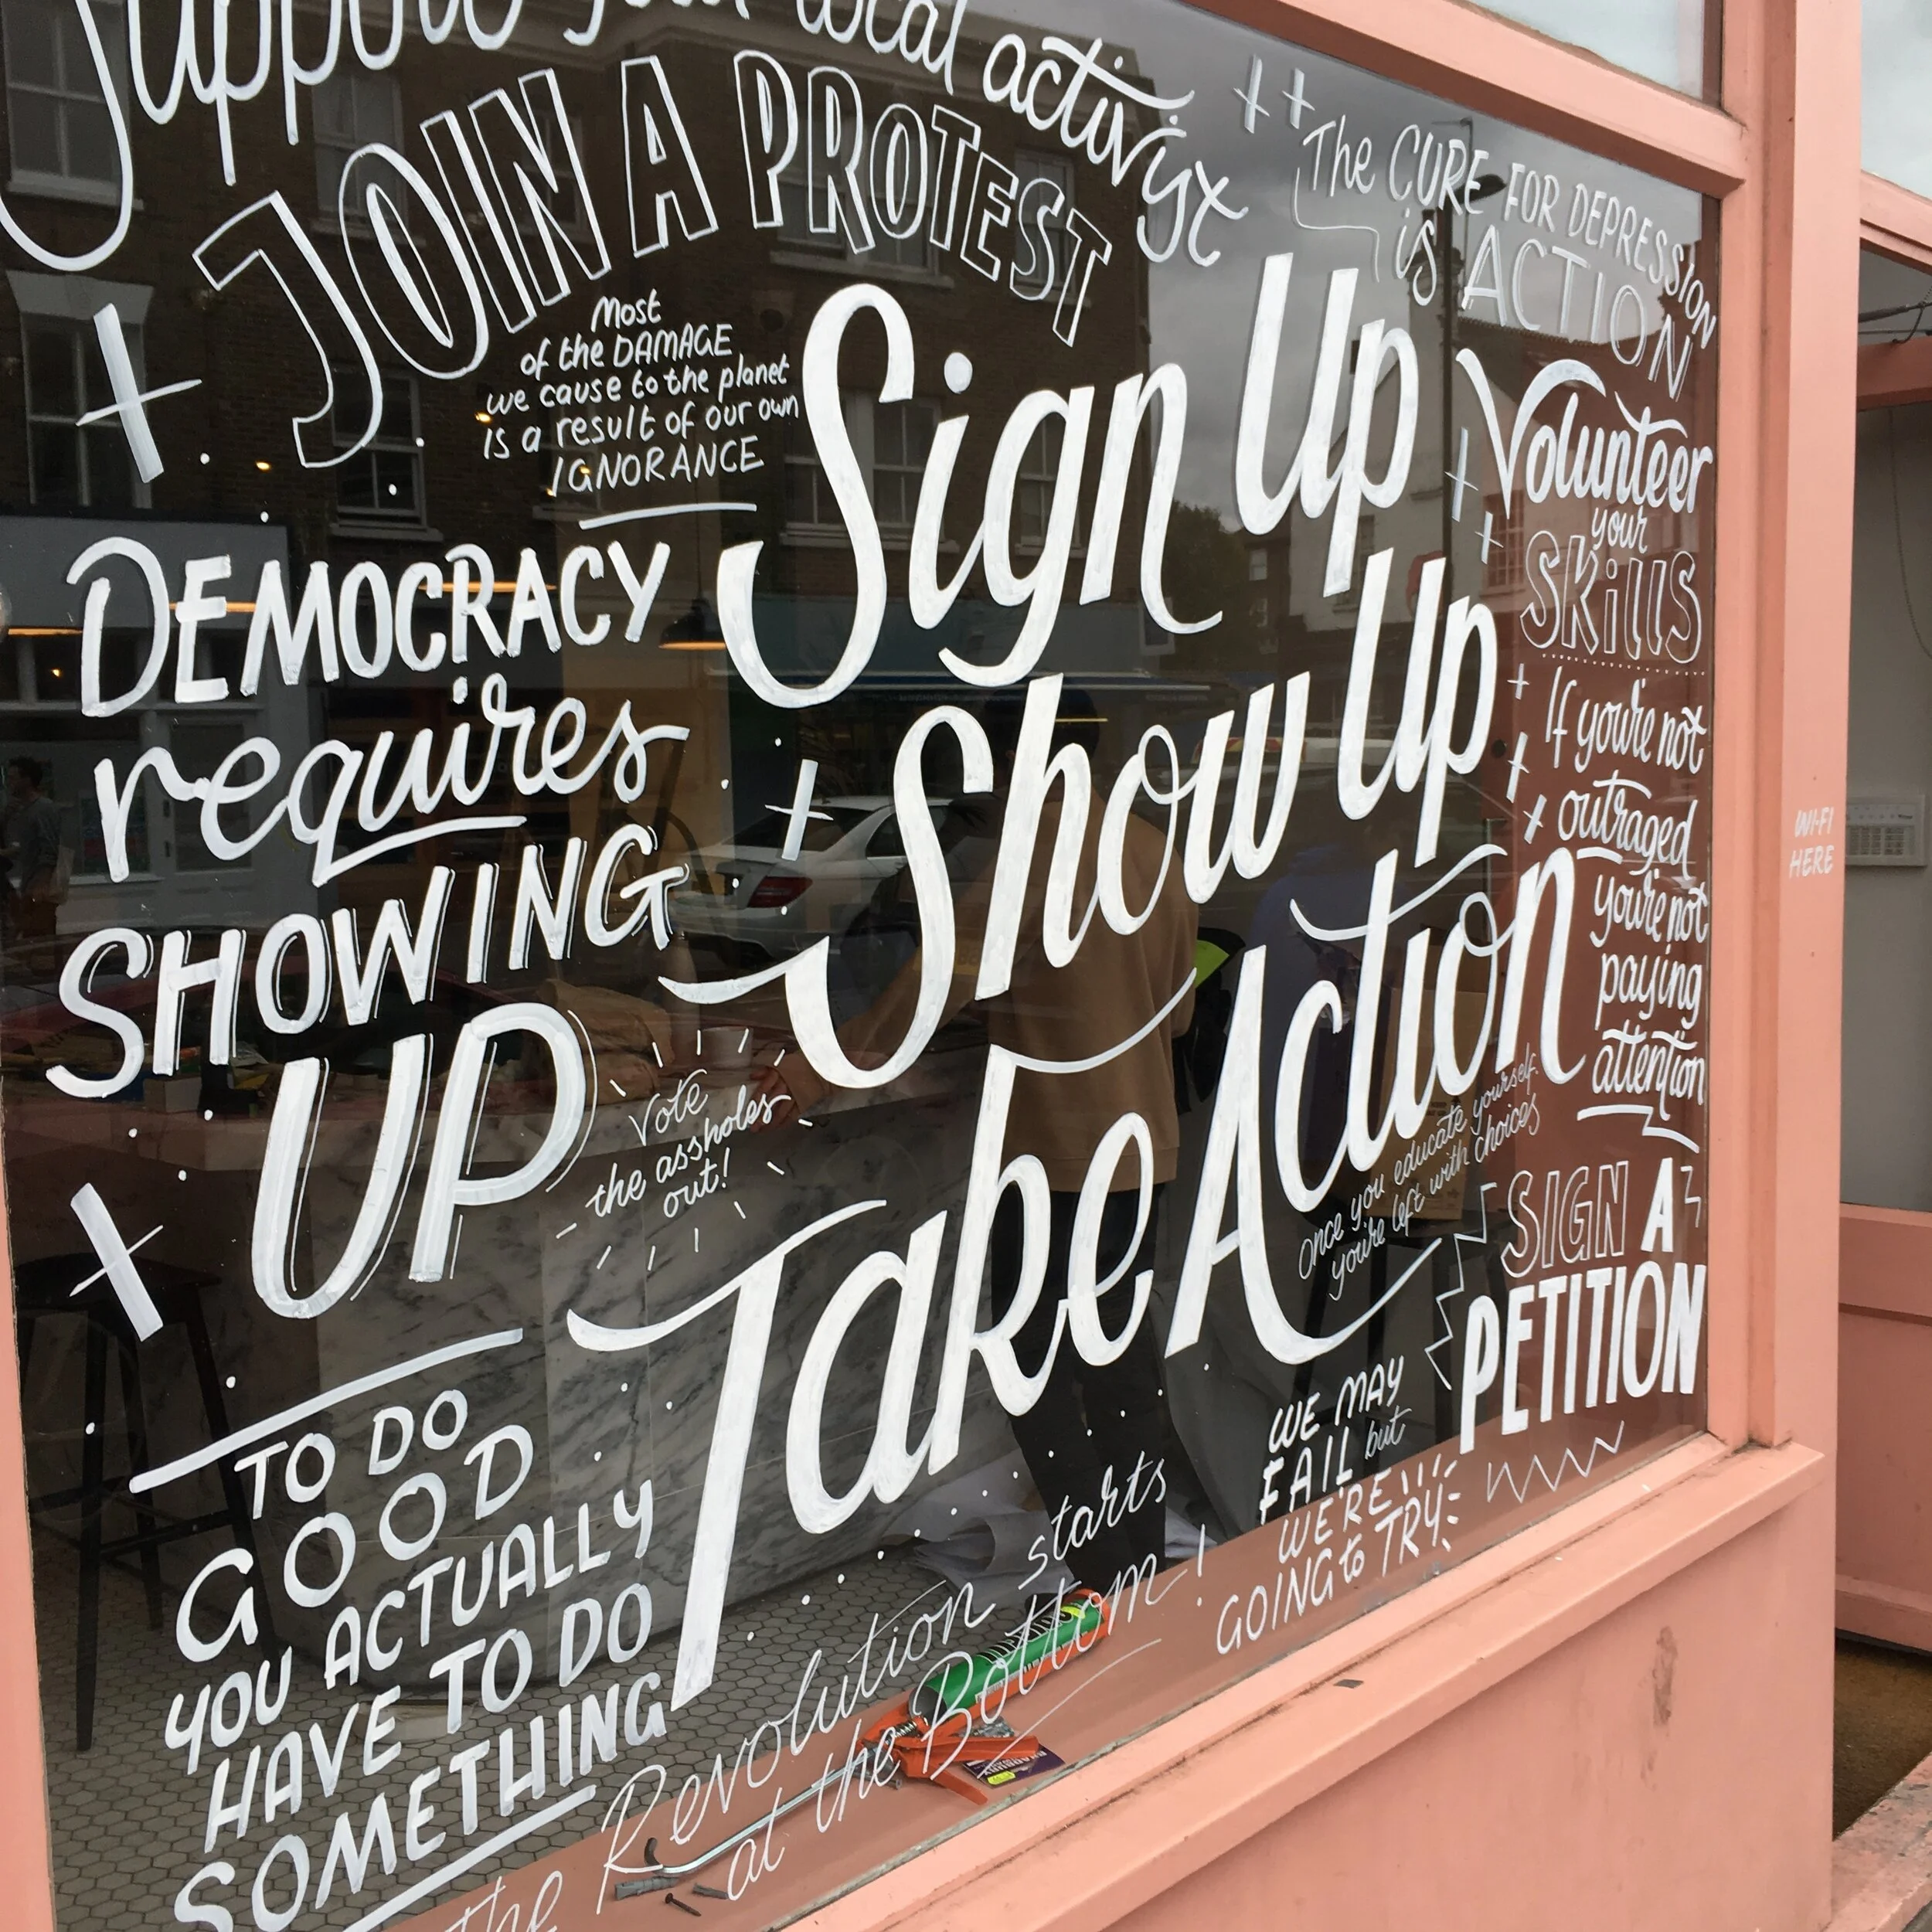 Support your local activist
JOIN A PROTEST
Most
of the DAMAGE
we cause to the planet
is a result of our own
IGNORANCE
DEMOCRACY
requires
SHOWING
UP
Vote
the assholes
out!
TO DO
GOOD
YOU ACTUALLY
HAVE TO DO
SOMETHING
Sign Up
Show Up
Take Action
the Revolution starts
at the Bottom!
The CURE FOR DEPRESSION
is ACTION
Volunteer
your
SKills
If you're not
outraged
you're not
paying
attention
Once you educate yourself
you're left with choices
SIGN A
PETITION
WE MAY
FAIL but
WE'RE
GOING to TRY
WI-FI
HERE